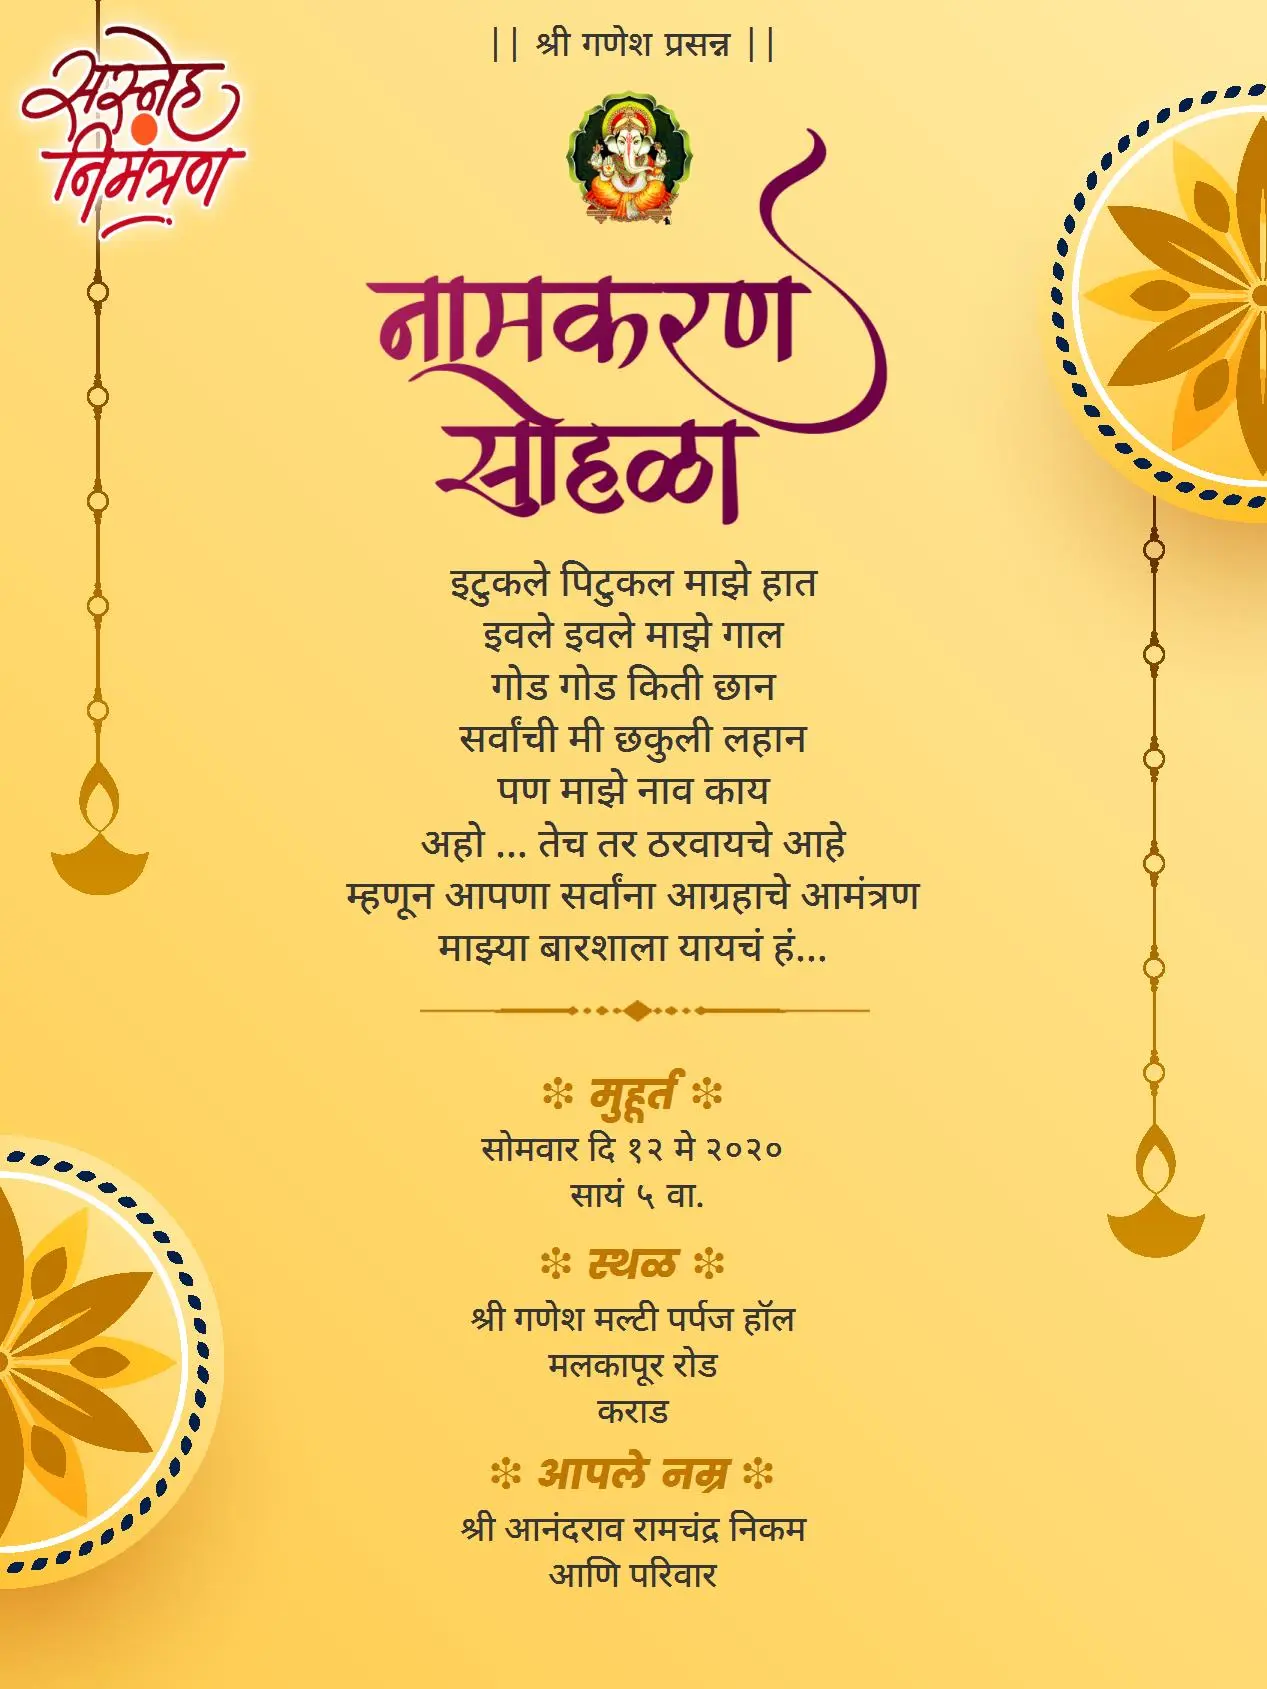 || श्री गणेश प्रसन्न ||
सस्नेह
निमंत्रण
नामकरण
सोहळा
इटुकले पिटुकल माझे हात
इवले इवले माझे गाल
गोड गोड किती छान
सर्वांची मी छकुली लहान
पण माझे नाव काय
अहो ... तेच तर ठरवायचे आहे
म्हणून आपणा सर्वांना आग्रहाचे आमंत्रण
माझ्या बारशाला यायचं हं...
❇ मुहूर्त ❇
सोमवार दि १२ मे २०२०
सायं ५ वा.
❇ स्थळ ❇
श्री गणेश मल्टी पर्पज हॉल
मलकापूर रोड
कराड
❇ आपले नम्र ❇
श्री आनंदराव रामचंद्र निकम
आणि परिवार